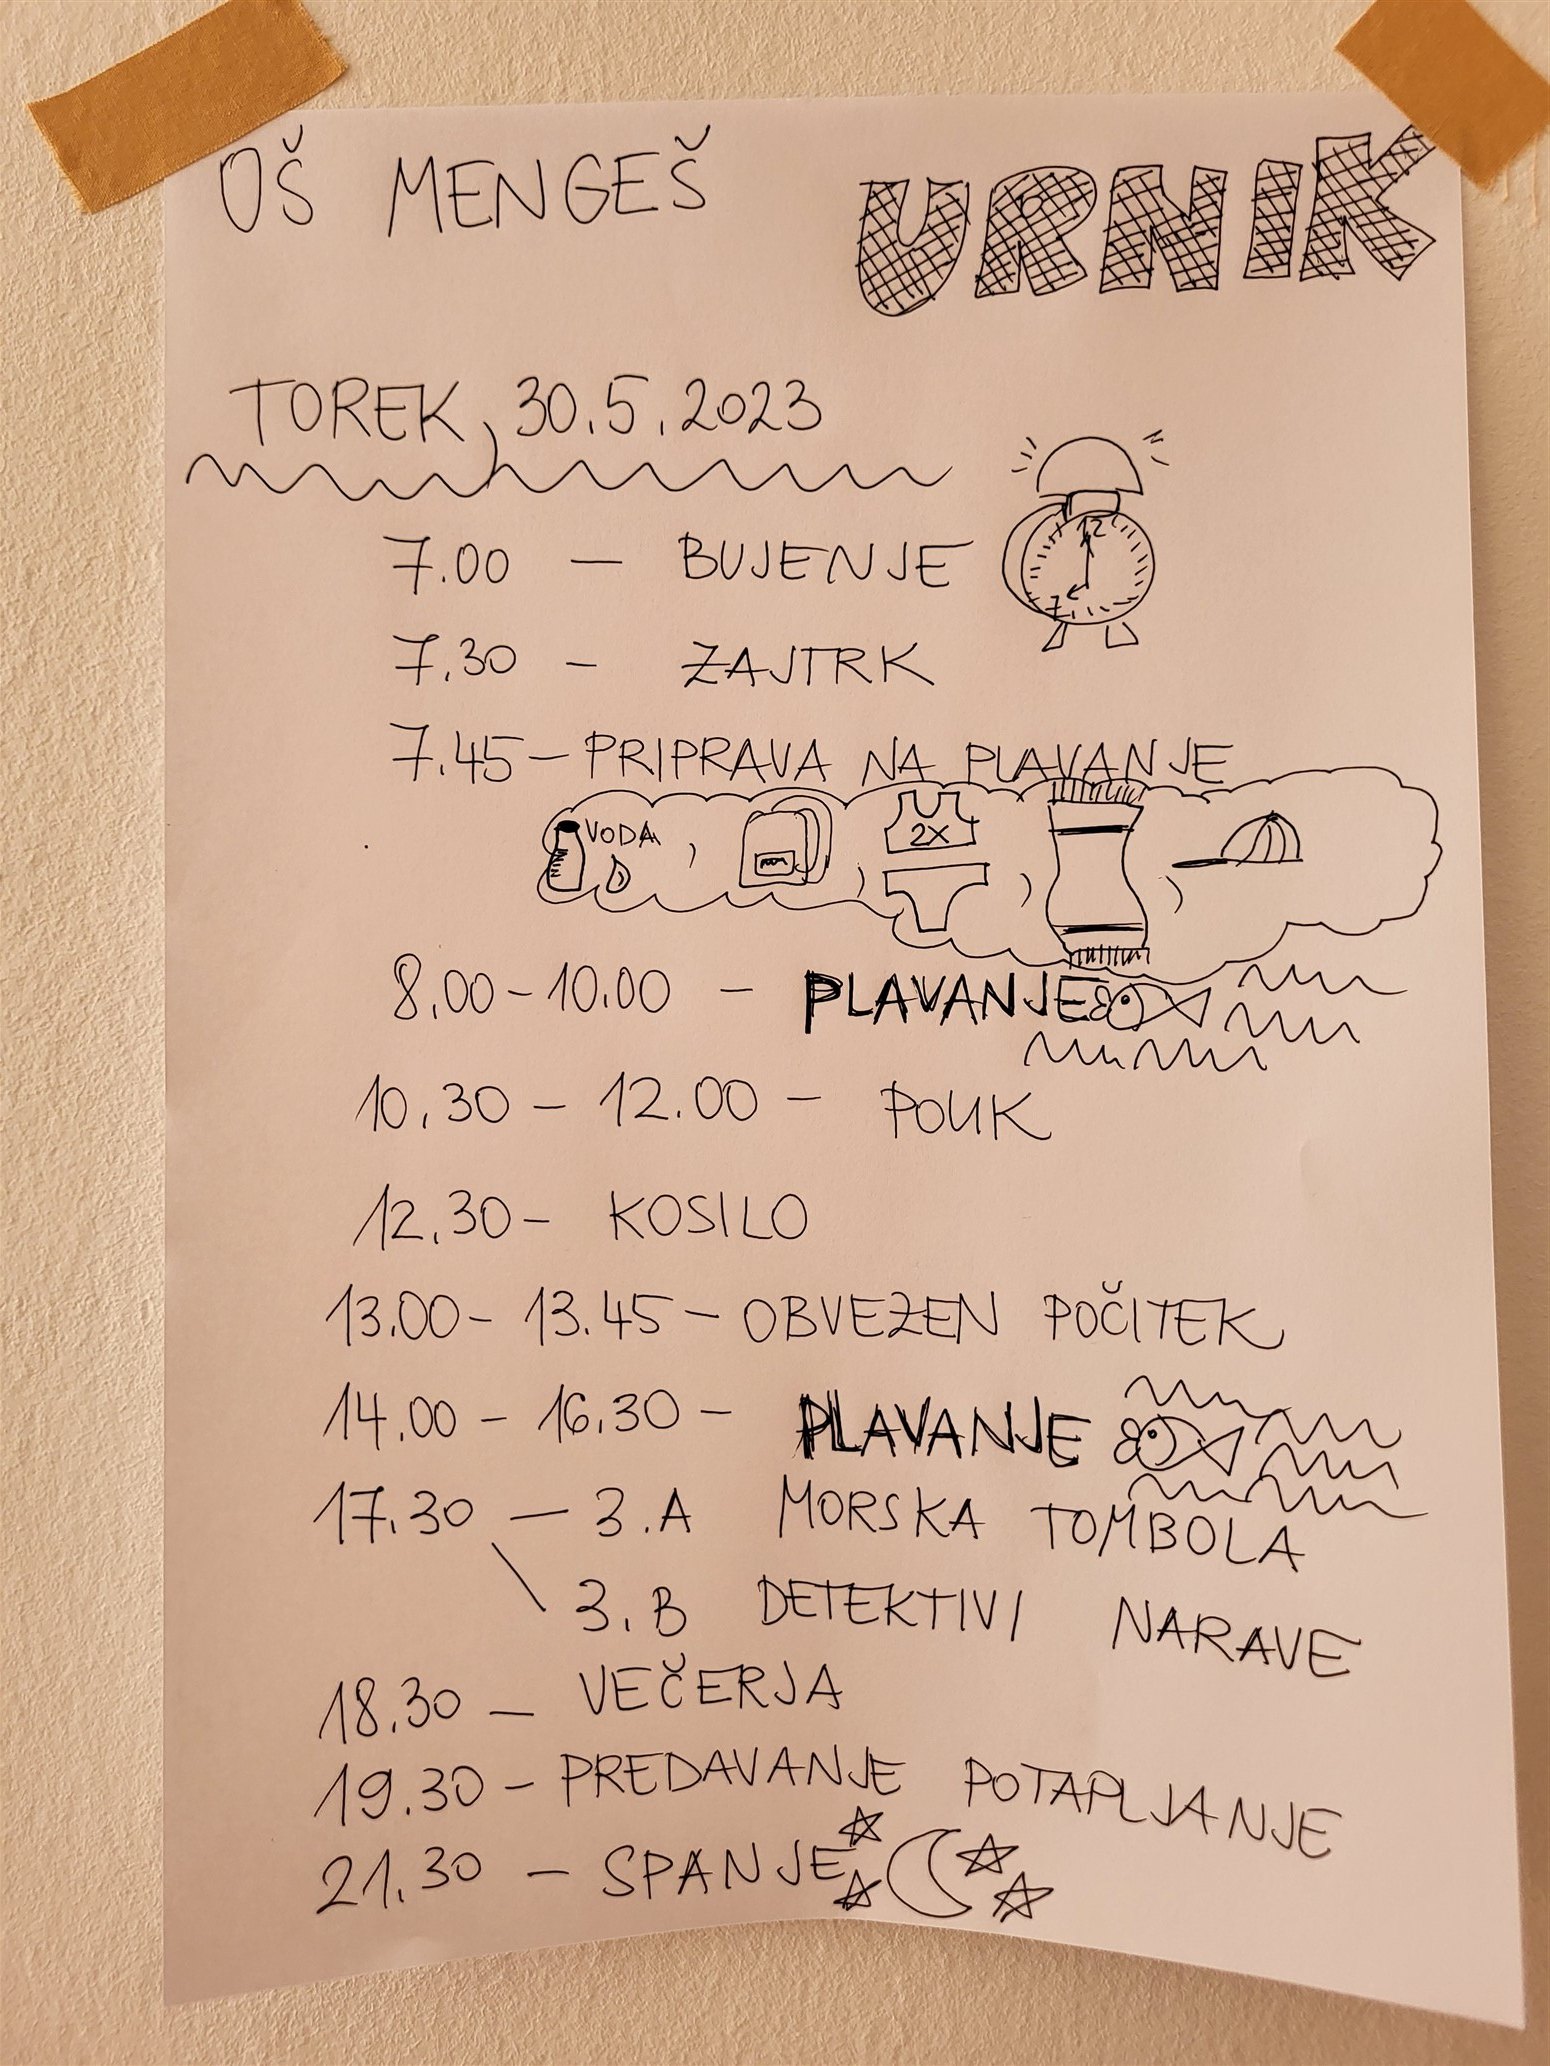 OŠ MENGEŠ URNIK
TOREK, 30.5.2023
12
7
7.00 – BUJENJE
7.30 – ZAJTRK
7.45 – PRIPRAVA NA PLAVANJE
VODA, 2X
8.00 – 10.00 – PLAVANJE
10.30 – 12.00 – POUK
12.30 – KOSILO
13.00 – 13.45 – OBVEZEN POČITEK
14.00 – 16.30 – PLAVANJE
17.30 – 3.A MORSKA TOMBOLA
3.B DETEKTIVI NARAVE
18.30 – VEČERJA
19.30 – PREDAVANJE POTAPLJANJE
21.30 – SPANJE